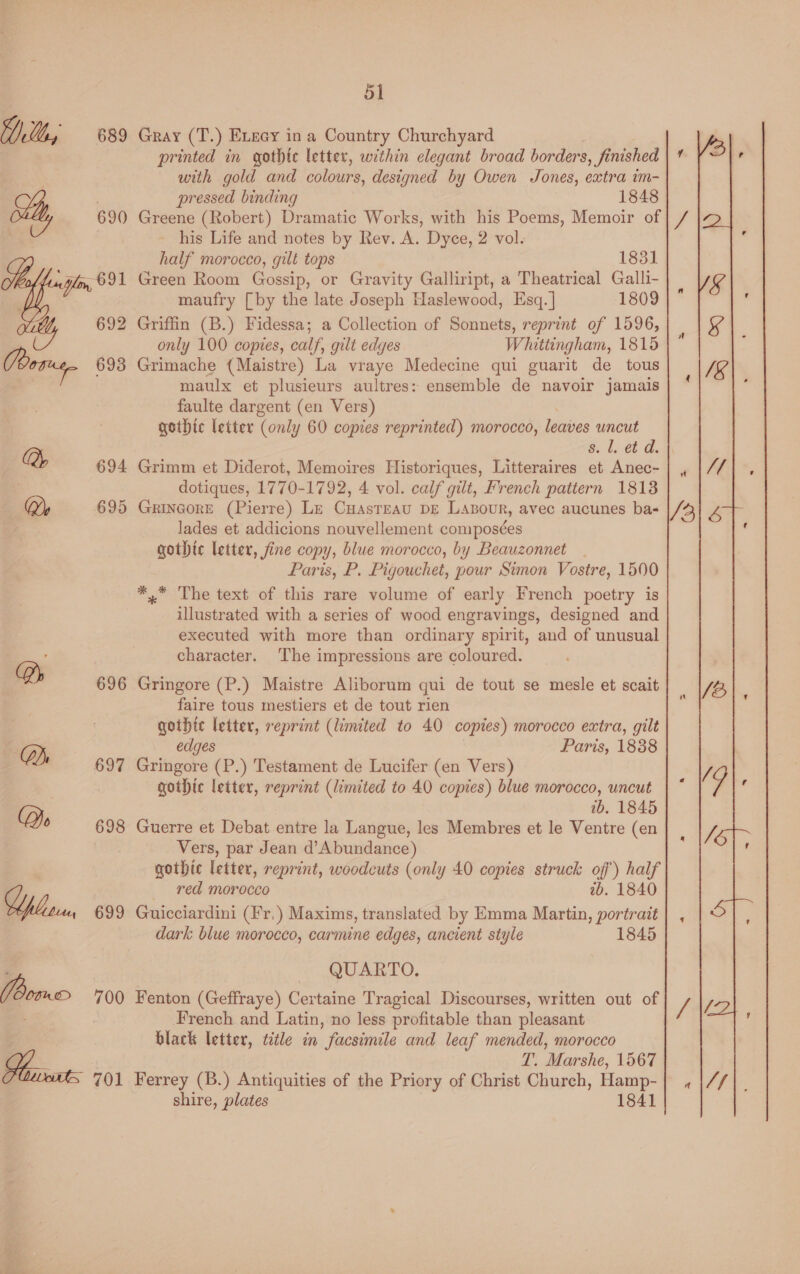 51
689 Gray (T.) Elegy in a Country Churchyard
printed in gothic letter, within elegant broad borders, finished
with gold and colours, designed by Owen Jones, extra im-
pressed binding 1848
690 Greene (Robert) Dramatic Works, with his Poems, Memoir of
his Life and notes by Rev. A. Dyce, 2 vol.
half morocco, gilt tops 1831
691 Green Room Gossip, or Gravity Galliript, a Theatrical Galli-
maufry [by the late Joseph Haslewood, Esq.] 1809
692 Griffin (B.) Fidessa; a Collection of Sonnets, reprint of 1596,
only 100 copies, calf, gilt edges Whittingham, 1815
693 Grimache (Maistre) La vraye Medecine qui guarit de tous
maulx et plusieurs aultres: ensemble de navoir jamais
faulte dargent (en Vers)
gothic letter (only 60 copies reprinted) morocco, leaves uncut
s. l. et d.
694 Grimm et Diderot, Memoires Historiques, Litteraires et Anec-
dotiques, 1770-1792, 4 vol. calf gilt, French pattern 1813
695 Gringore (Pierre) Le Chasteau de Labour, avec aucunes ba-
lades et addicions nouvellement composées
gothic letter, fine copy, blue morocco, by Beauzonnet
Paris, P. Pigouchet, pour Simon Vostre, 1500
*** The text of this rare volume of early French poetry is
illustrated with a series of wood engravings, designed and
executed with more than ordinary spirit, and of unusual
character. The impressions are coloured.
696 Gringore (P.) Maistre Aliborum qui de tout se mesle et scait
faire tous mestiers et de tout rien
gothic letter, reprint (limited to 40 copies) morocco extra, gilt
edges Paris, 1838
697 Gringore (P.) Testament de Lucifer (en Vers)
gothic letter, reprint (limited to 40 copies) blue morocco, uncut
ib. 1845
698 Guerre et Debat entre la Langue, les Membres et le Ventre (en
Vers, par Jean d'Abundance)
gothic letter, reprint, woodcuts (only 40 copies struck off) half
red morocco ib. 1840
699 Guicciardini (Fr.) Maxims, translated by Emma Martin, portrait
dark blue morocco, carmine edges, ancient style 1845
QUARTO.
Boone 700 Fenton (Geffraye) Certaine Tragical Discourses, written out of
French and Latin, no less profitable than pleasant
black letter, title in facsimile and leaf mended, morocco
T. Marshe, 1567
701 Ferrey (B.) Antiquities of the Priory of Christ Church, Hamp-
shire, plates 1841